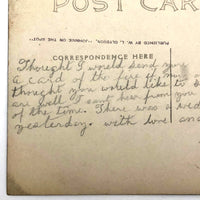 POST CAR
PUBLISHED BY W. L. GLYDSON, "JOHNNIE ON THE SPOT"
CORRESPONDENCE HERE
Thought I would send you
a card of the fire
thought you would like to
are well & cant hear from you
of the time. There was a wed
yesterday. with love an